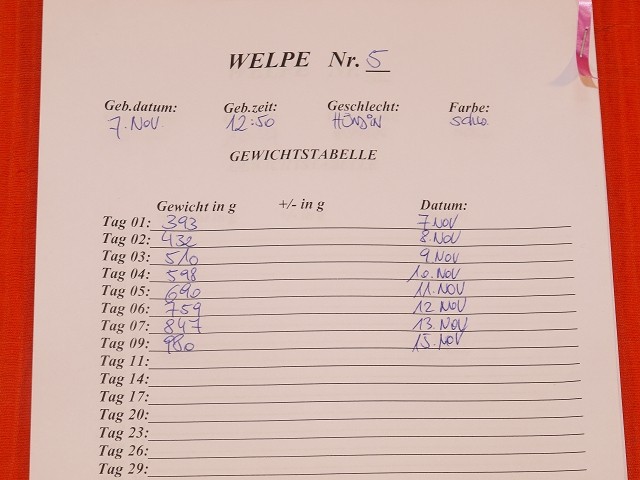 WELPE Nr. 5
Geb.datum: Geb.zeit: Geschlecht: Farbe:
7. NOV. 12:50 HÜNDIN schw.
GEWICHTSTABELLE
Gewicht in g +/- in g Datum:
Tag 01: 393 7 NOV
Tag 02: 432 8. NOV
Tag 03: 510 9 NOV
Tag 04: 598 10. NOV
Tag 05: 690 11. NOV
Tag 06: 759 12 NOV
Tag 07: 847 13. NOV
Tag 09: 980 15. NOV
Tag 11:
Tag 14:
Tag 17:
Tag 20:
Tag 23:
Tag 26:
Tag 29: